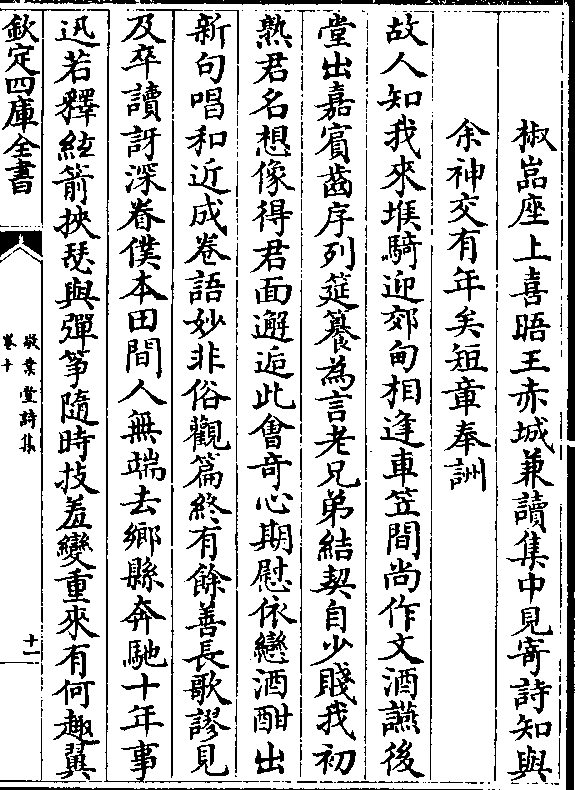 椒嵓座上喜晤王赤城兼讀集中見寄詩知與
余神交有年矣短章奉詶
故人知我來堠騎迎郊甸相逢車笠間尚作文酒讌後
堂出嘉賔齒序列筵籑為言老兄弟結契自少賤我初
熟君名想像得君面邂逅此會奇心期慰依戀酒酣出
新句唱和近成卷語妙非俗觀篇終有餘善長歌謬見
及卒讀訝深眷僕本田間人無端去鄉縣奔馳十年事
迅若釋絃箭挾瑟與彈筝隨時技羞變重來有何趣翼
欽定四庫全書
敬業堂詩集
卷十
十一